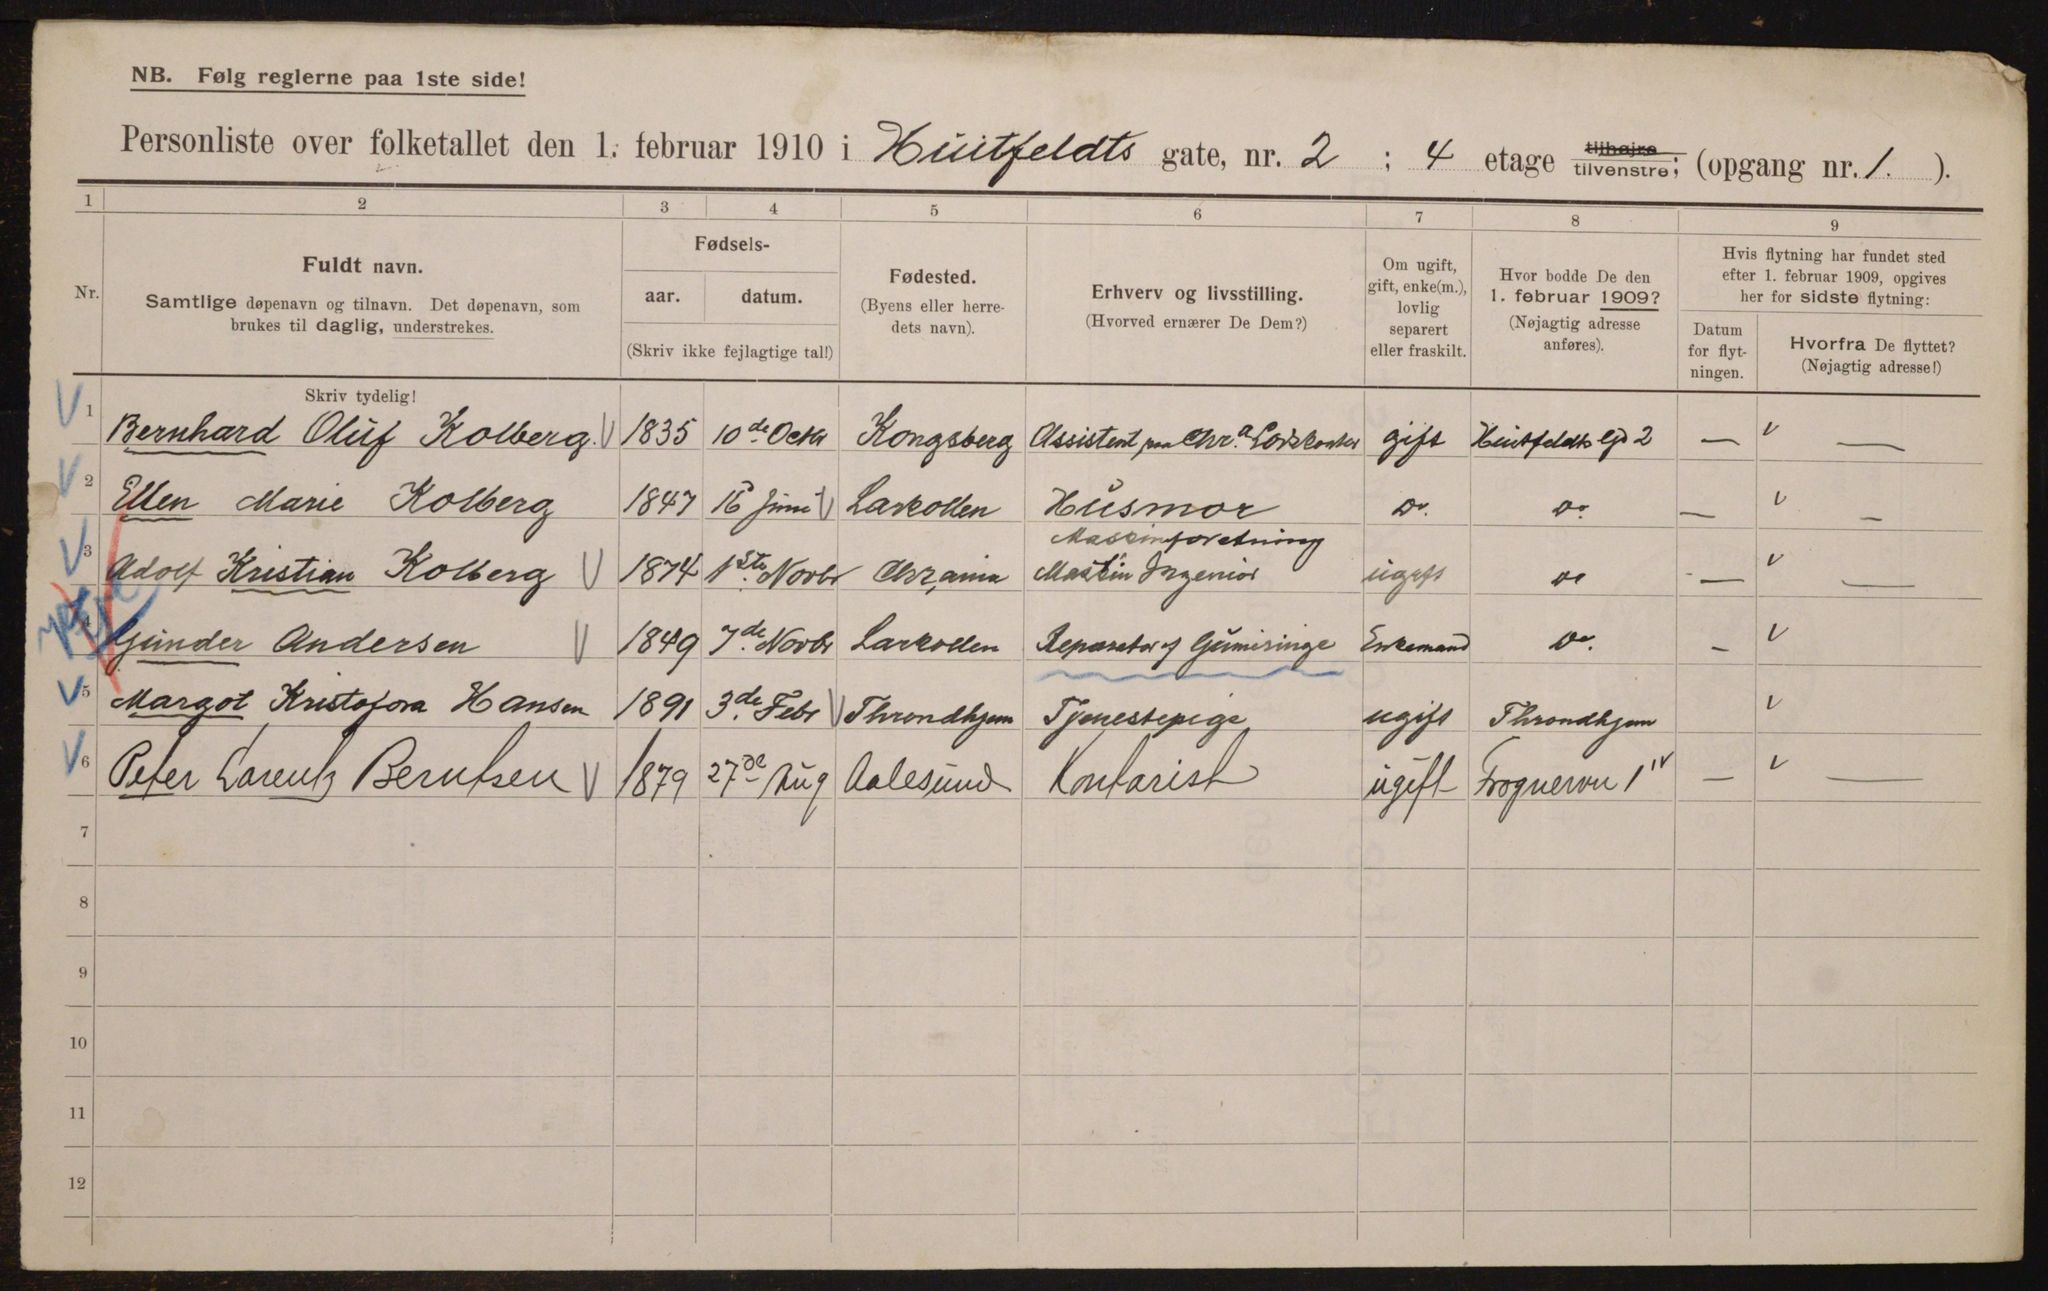 NB. Følg reglerne paa 1ste side!
Personliste over folketallet den 1. februar 1910 i Huitfeldts gate, nr. 2 ; 4 etage tilhøjre tilvenstre; (opgang nr. 1. ).
1 2 3 4 5 6 7 8 9
Nr.
Fuldt navn.
Samtlige døpenavn og tilnavn. Det døpenavn, som
brukes til daglig, understrekes.
Skriv tydelig!
Fødsels-
aar. datum.
(Skriv ikke fejlagtige tal!)
Fødested.
(Byens eller herre-
dets navn).
Erhverv og livsstilling.
(Hvorved ernærer De Dem?)
Om ugift,
gift, enke(m.),
lovlig
separert
eller fraskilt.
Hvor bodde De den
1. februar 1909?
(Nøjagtig adresse
anføres).
Hvis flytning har fundet sted
efter 1. februar 1909, opgives
her for sidste flytning:
Datum
for flyt-
ningen.
Hvorfra De flyttet?
(Nøjagtig adresse!)
1 Bernhard Oluf Kolberg. 1835 10de Octbr Kongsberg Assistent paa Chr.a Lodskontor gift Huitfeldts Gd 2 — —
2 Ellen Marie Kolberg 1847 16 Juni Larkollen Husmor Do. Do. — —
Maskinforretning
3 Adolf Kristian Kolberg 1874 1ste Novbr Chr.ania Maskin Ingeniør ugift Do — —
4 Gunder Andersen 1849 7de Novbr Larkollen Reparatør af Gumiringe Enkemand Do. —
5 Margot Kristofora Hansen 1891 3de Febr Throndhjem Tjenestepige ugift Throndhjem
6 Peter Lorentz Berntsen 1879 27de Aug Aalesund Kontorist ugift Frognervn 1 IV — —
7
8
9
10
11
12